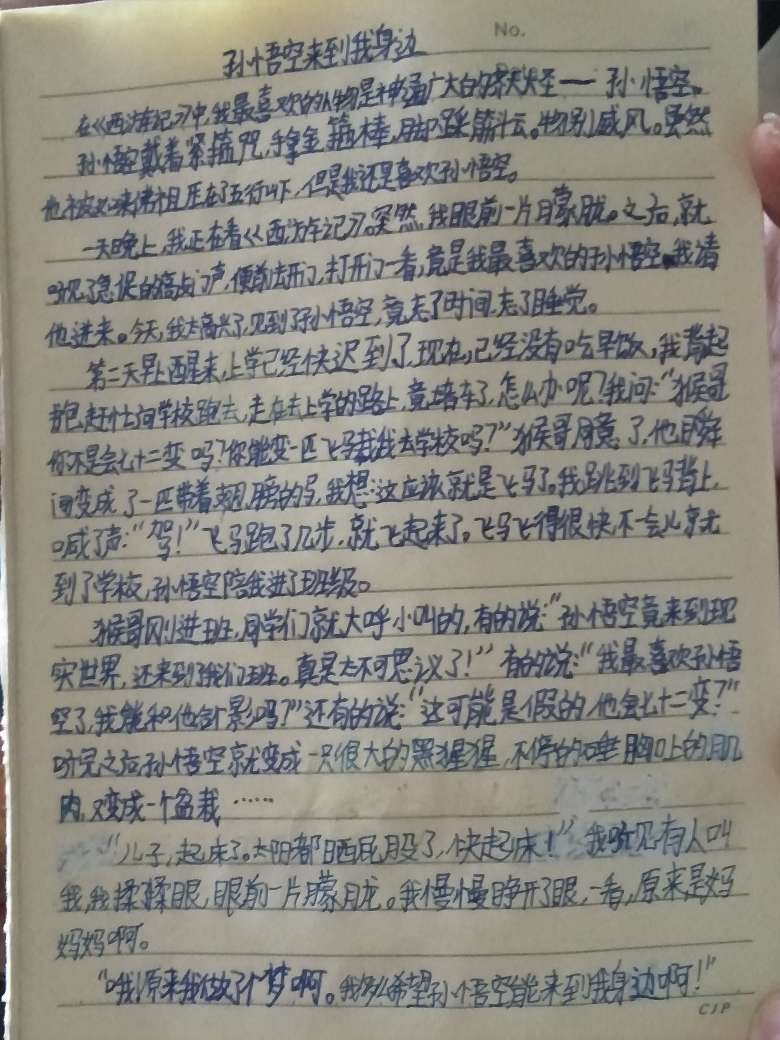 No.
Date
孙悟空来到我身边
在《西游记》中,我最喜欢的人物是神通广大的齐天大圣——孙悟空。
孙悟空戴着紧箍咒,手拿金箍棒,脚踩筋斗云。特别威风。虽然
他被如来佛祖压在了五行山下,但是我还是喜欢孙悟空。
一天晚上,我正在看《西游记》。突然,我眼前一片朦胧。之后,就
听见了急促的敲门声,便前去开门,打开门一看,竟是我最喜欢的孙悟空。我请
他进来。今天,我太高兴了,见到了孙悟空,竟忘了时间,忘了睡觉。
第二天早上醒来,上学已经快迟到了,现在,已经没有吃早饭,我背起
书包赶忙向学校跑去,走在去上学的路上,竟堵车了,怎么办呢?我问:“猴哥
你不是会七十二变吗?你能变一匹飞马载我去学校吗?”猴哥同意了,他瞬
间变成了一匹带着翅膀的马,我想:这应该就是飞马了。我跳到飞马背上,
喊了声:“驾!”飞马跑了几步,就飞起来了。飞马飞得很快,不一会儿就
到了学校,孙悟空陪我进了班级。
猴哥刚进班,同学们就大呼小叫的,有的说:“孙悟空竟来到现
实世界,还来到了我们班。真是太不可思议了!”有的说:“我最喜欢孙悟
空了,我能和他合影吗?”还有的说:“这可能是假的,他会七十二变?”
听完之后孙悟空就变成一只很大的黑猩猩,不停的捶胸口上的肌
肉,又变成一个盆栽……
“儿子,起床了。太阳都晒屁股了,快起床!”我听见有人叫
我,我揉揉眼,眼前一片朦胧。我慢慢睁开了眼,一看,原来是妈
妈妈啊。
“哦!原来我做了个梦啊。我多么希望孙悟空能来到我身边啊!”
CJP